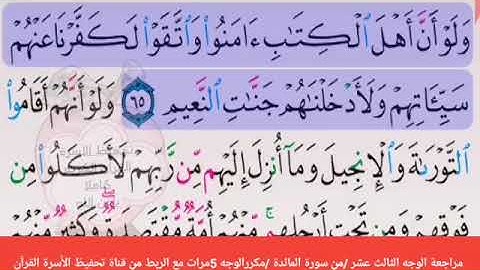 وَلَوْ أَنَّ أَهْلَ ٱلْكِتَٰبِ ءَامَنُوا۟ وَٱتَّقَوْا۟ لَكَفَّرْنَا عَنْهُمْ
سَيِّـَٔاتِهِمْ وَلَأَدْخَلْنَٰهُمْ جَنَّٰتِ ٱلنَّعِيمِ ٦٥ وَلَوْ أَنَّهُمْ أَقَامُوا۟
ٱلتَّوْرَىٰةَ وَٱلْإِنجِيلَ وَمَآ أُنزِلَ إِلَيْهِم مِّن رَّبِّهِمْ لَأَكَلُوا۟ مِن
فَوْقِهِمْ وَمِن تَحْتِ أَرْجُلِهِم ۚ مِّنْهُمْ أُمَّةٌ مُّقْتَصِدَةٌ ۖ وَكَثِيرٌ مِّنْهُمْ
مراجعة الوجه الثالث عشر /من سورة المائدة /مكررالوجه 5مرات مع الربط من قناة تحفيظ الأسرة القرآن